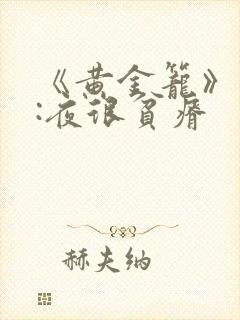 《黄金籠》
:夜很貧瘠
赫夫纳